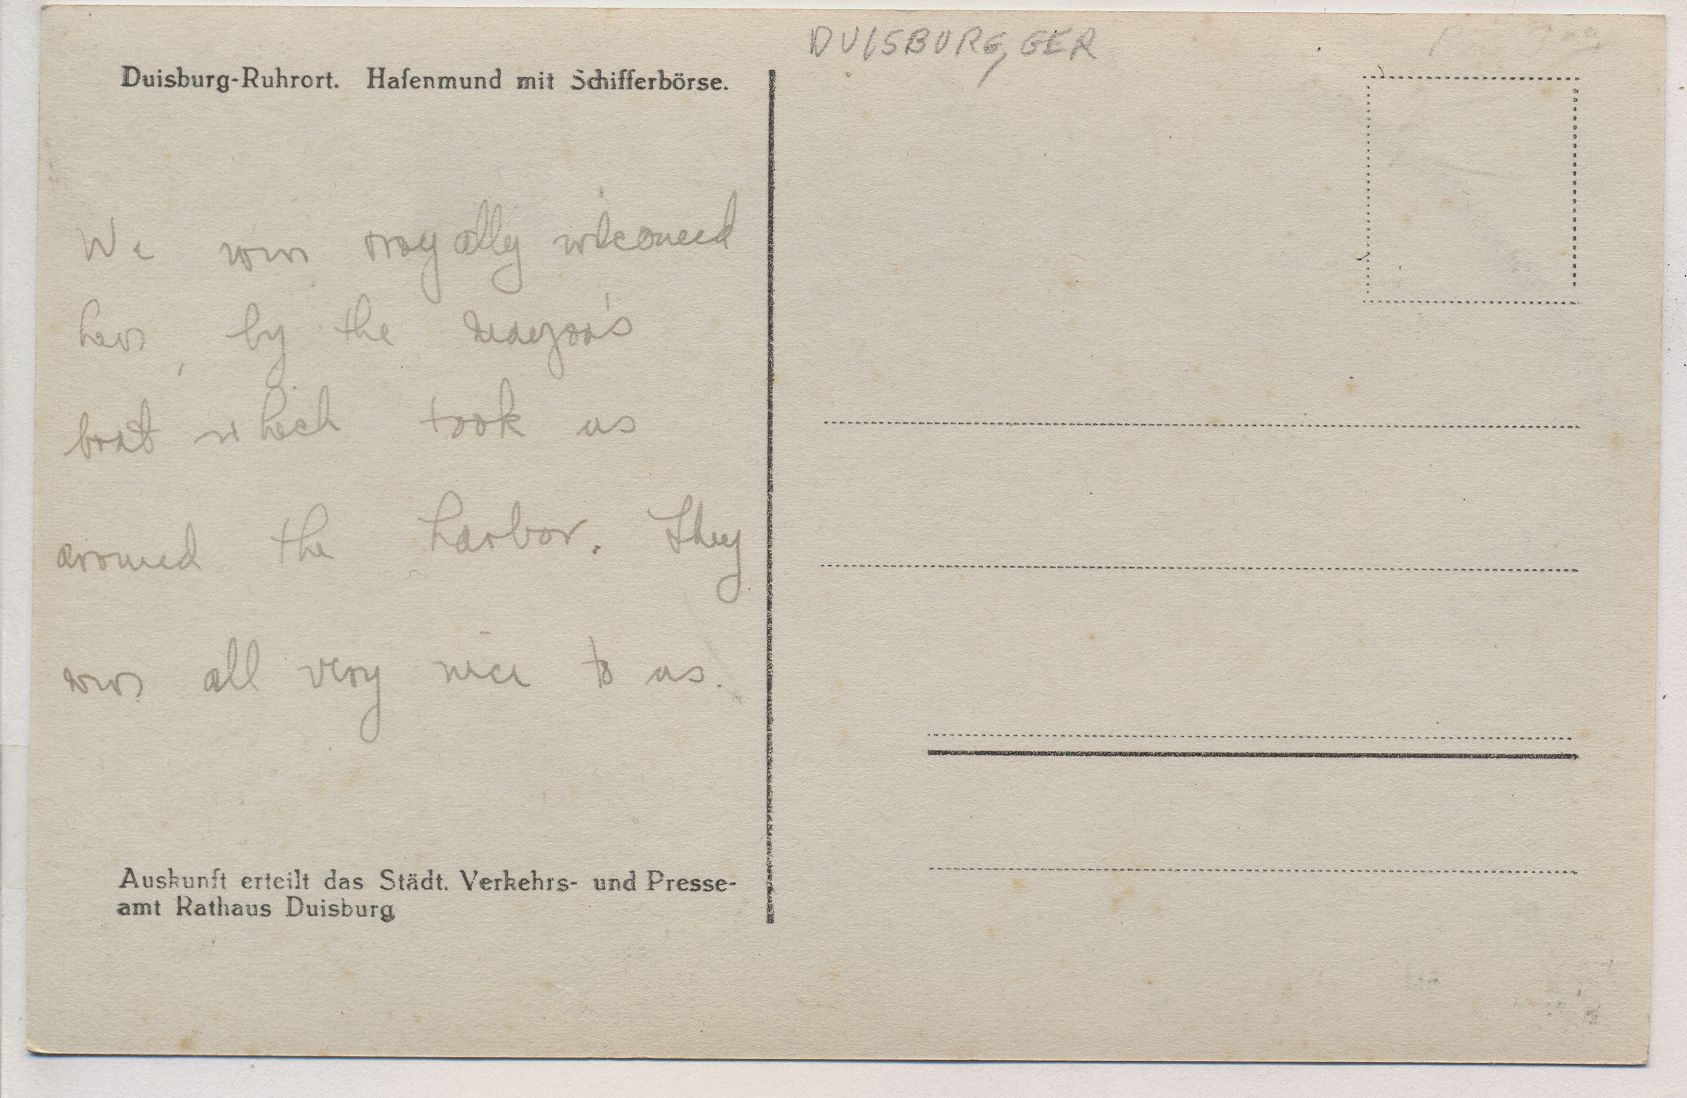 DUISBURG, GER
Duisburg-Ruhrort. Hafenmund mit Schifferbörse.
We were royally welcomed
here, by the mayor's
boat which took us
around the harbor. They
were all very nice to us.
Auskunft erteilt das Städt. Verkehrs- und Presse-
amt Rathaus Duisburg